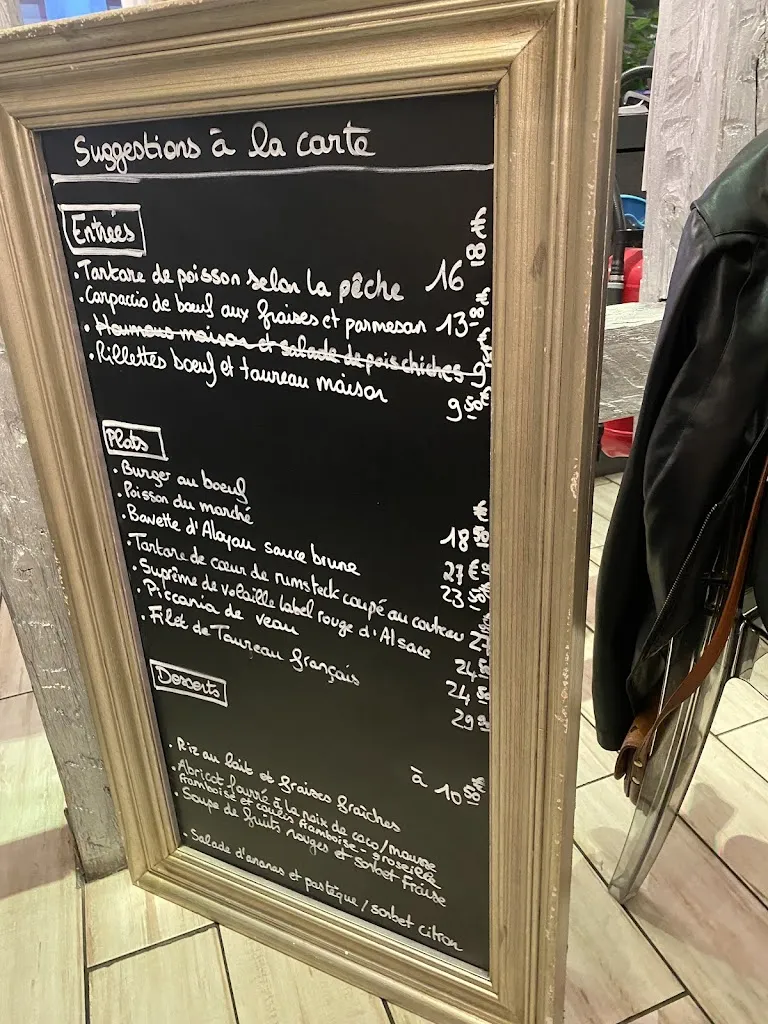 Suggestions à la carte
Entrées
. Tartare de poisson selon la pêche 16
. Carpaccio de bœuf aux fraises et parmesan 13
. Houmous maison et salade de pois chiches
. Rillettes bœuf et taureau maison 9 50
Plats
. Burger au bœuf 18 50
. Poisson du marché 27 €
. Bavette d'Aloyau sauce brune 23 50
. Tartare de cœur de rumsteck coupé au couteau
. Suprême de volaille label rouge d'Alsace 24
. Piccania de veau 24 50
. Filet de Taureau français 29
Desserts
à 10 50 €
. Riz au lait et fraises fraîches
. Abricot fourré à la noix de coco/mousse
framboise et coulis framboise - groseille
. Soupe de fruits rouges et sorbet Fraise
. Salade d'ananas et pastèque / sorbet citron